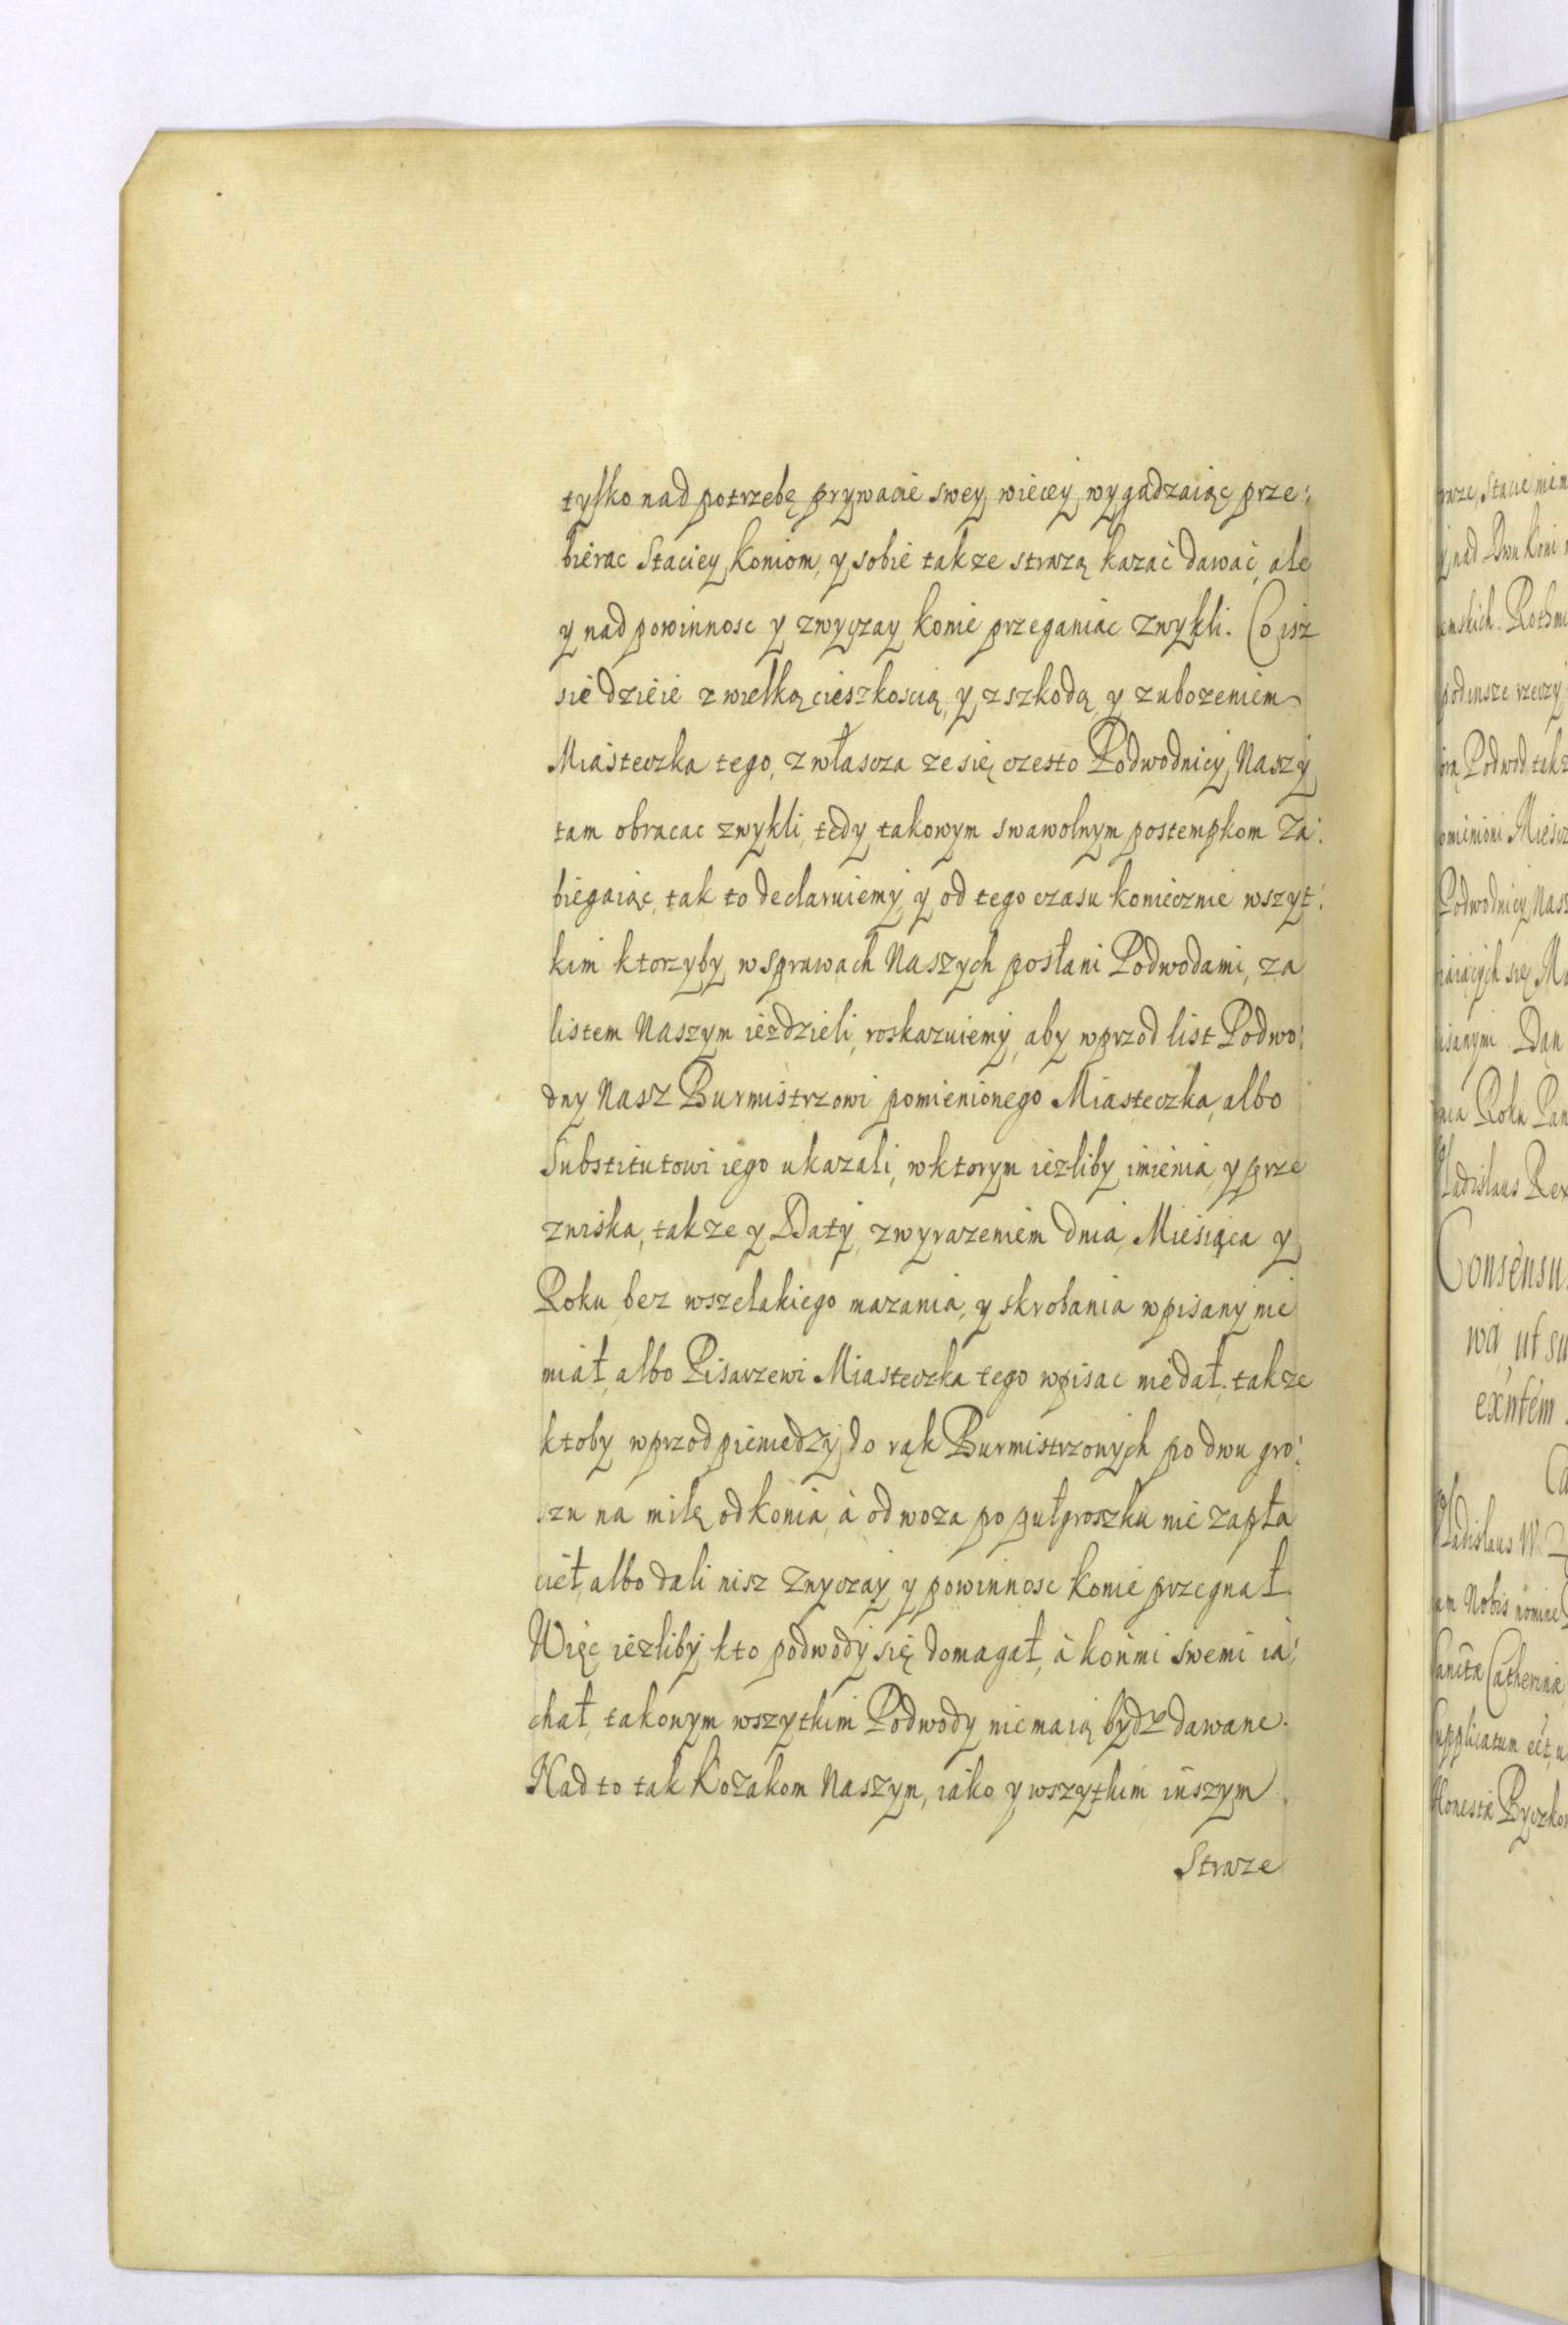 tylko nad potrzebę prywacie swey wiecey wygadzaiąc prze:
bierac Staciey koniom, y sobie takze strazą kazać dawać, ale
y nad powinnosc y zwyczay konie przeganiac zwykli. Co isz
sie dzieie z wielką cieszkoscią, y z szkodą y zubozeniem
Miasteczka tego, zwłascza ze się czesto Podwodnicy Naszy
tam obracac zwykli, tedy takowym swawolnym postempkom Za:
biegaiąc, tak to declaruiemy, y od tego czasu koniecznie wszyt:
kim ktorzyby w Sprawach Naszych posłani Podwodami, za
listem Naszym iezdzieli, roskazuiemy, aby wprzod list Podwo:
dny Nasz Burmistrzowi pomienionego Miasteczka, albo
Substitutowi iego ukazali, w ktorym iezliby imienia, y prze
zwiska, takze y Daty, z wyrazeniem dnia, Miesiąca y
Roku, bez wszelakiego mazania, y skrobania wpisany nie
miał, albo Pisarzewi Miasteczka tego wpisac nie dał, takze
ktoby wprzod pieniedzy do rąk Burmistrzowych po dwu gro:
szu na milę od konia, à od woza po pułgroszku nie zapła
cieł, albo dali nisz Zwyczay y powinnosc konie przegnał
Więc iezliby kto podwody się domagał, à końmi swemi ia:
chał, takowym wszytkim Podwody nie maią bydz dawane.
Nad to tak Kozakom Naszym, iako y wszytkim inszym
Straze
Podwodnicy Nas
Roku Pan
Consensu
wa, ut su
exntem
Nobis nomine
Catherina